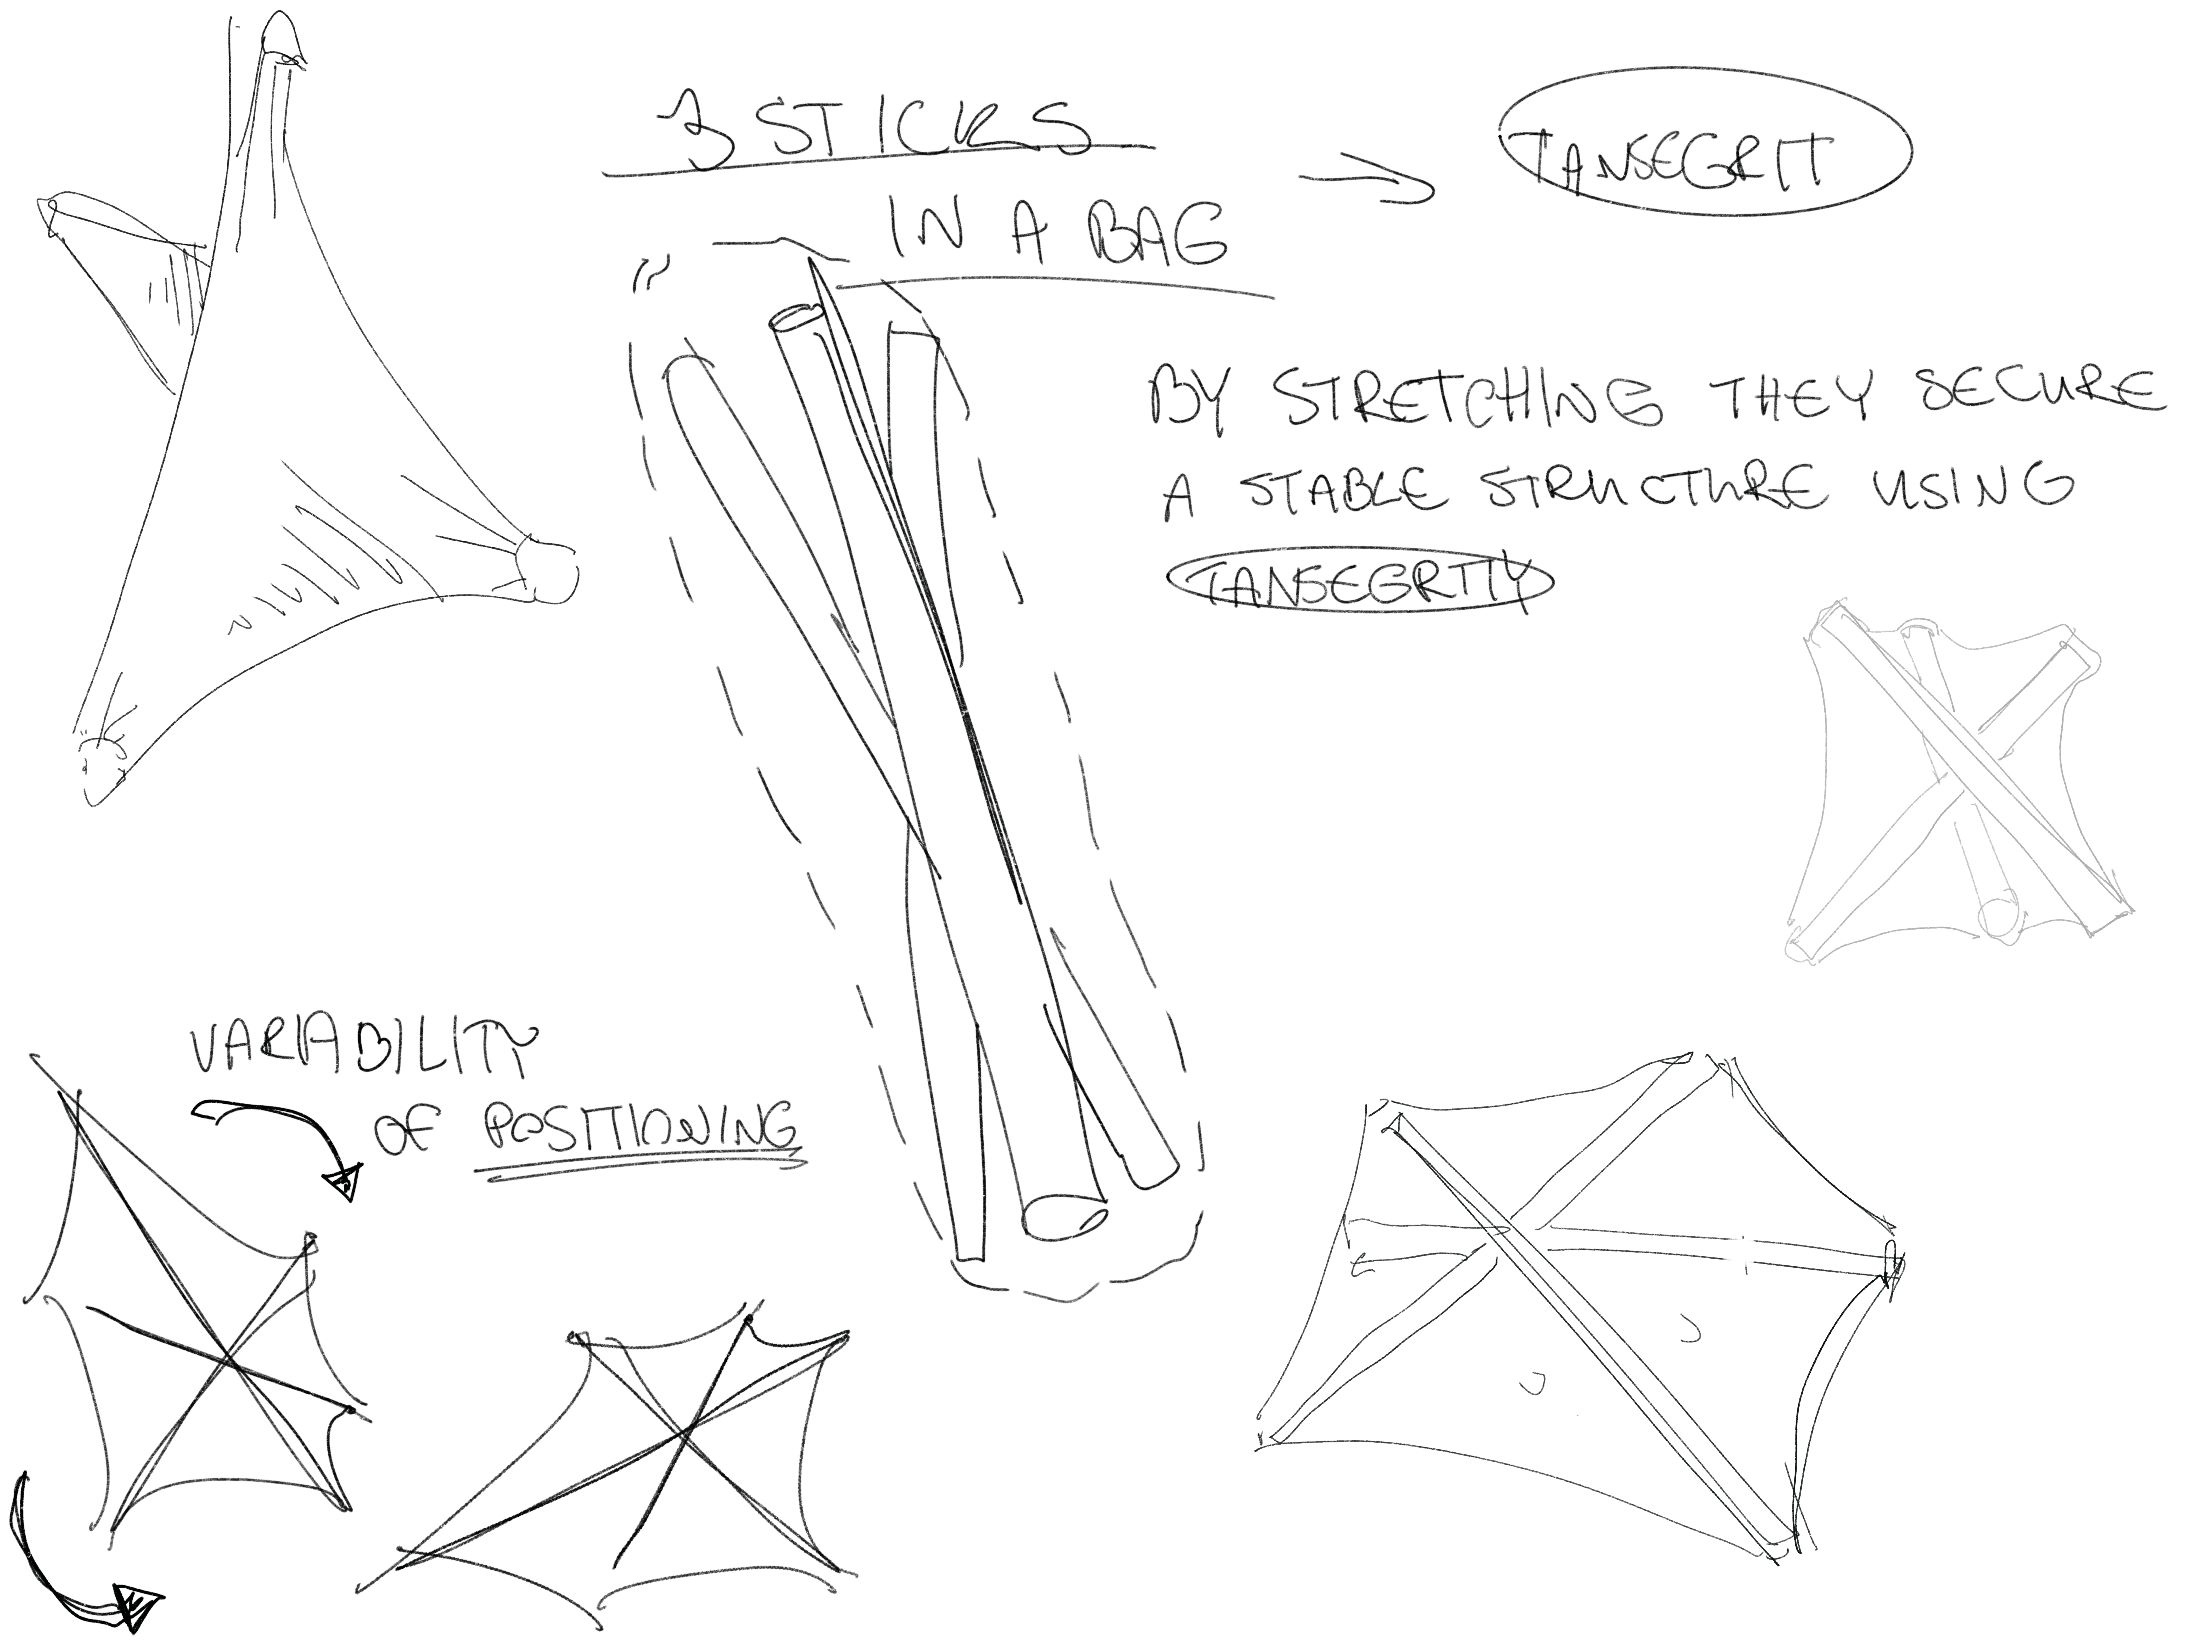 3 STICKS
IN A BAG
TANSEGRIT
BY STRETCHING THEY SECURE
A STABLE STRUCTURE USING
TANSEGRTIY
VARIABILITY
OF POSITIONING